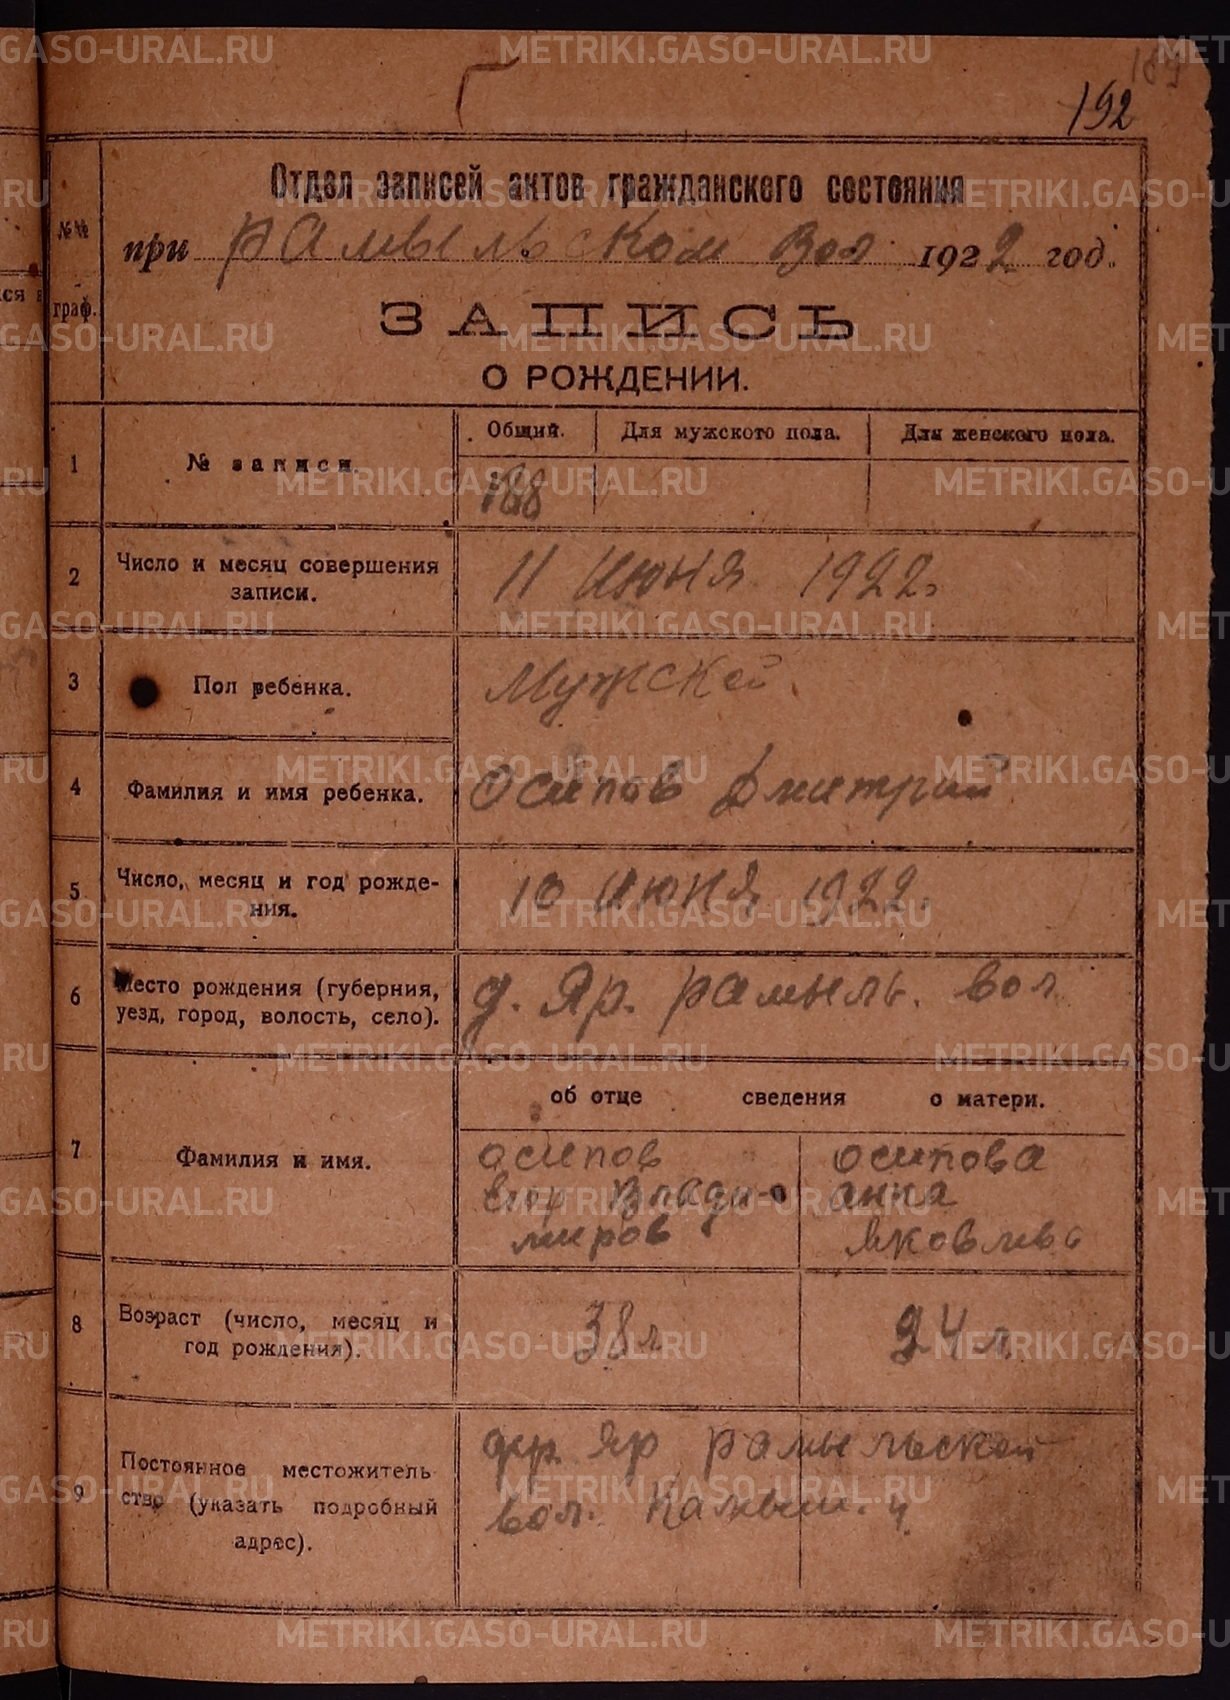 192
Отдел записей актов гражданского состояния
№№ граф.
при Рамыльском Вол 1922 год.
ЗАПИСЬ
О РОЖДЕНИИ.
Общий. Для мужского пола. Для женского пола.
1 № записи. 188
2 Число и месяц совершения записи. 11 Июня 1922г
3 Пол ребенка. Мужской
4 Фамилия и имя ребенка. Осипов Дмитрий
5 Число, месяц и год рожде-
ния. 10 Июня 1922.
6 Место рождения (губерния,
уезд, город, волость, село). д. Яр. Рамыль. вол
об отце сведения о матери.
7 Фамилия и имя.
осипов осипова
Егор Влади- анна
миров яковлева
8 Возраст (число, месяц и
год рождения). 38 л 24 л.
9 Постоянное местожитель
ство (указать подробный
адрес).
дер. Яр Рамыльской
вол. Камыш. у.
METRIKI.GASO-URAL.RU